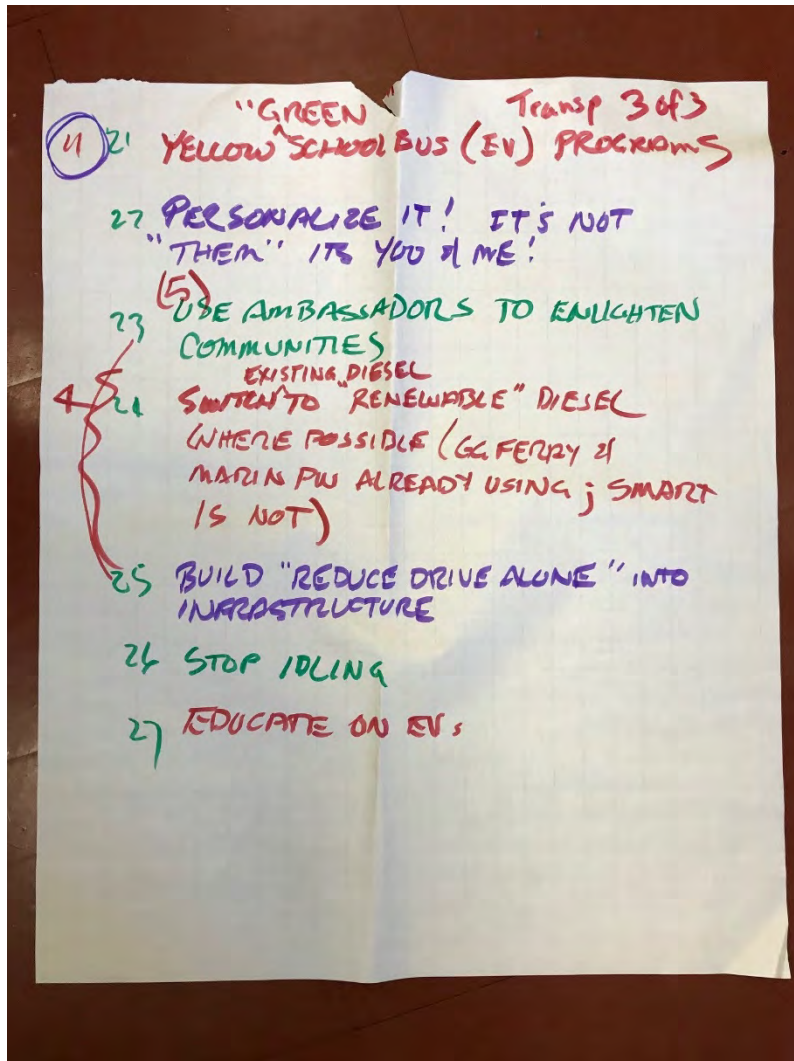 Transp 3 of 3
"GREEN"
11 21 YELLOW ^ SCHOOL BUS (EV) PROGRAMS
22 PERSONALIZE IT! IT'S NOT
"THEM" ITS YOU & ME!
(5)
23 USE AMBASSADORS TO ENLIGHTEN
COMMUNITIES
EXISTING DIESEL
4 24 SWITCH ^ TO "RENEWABLE" DIESEL
WHERE POSSIBLE (GG FERRY &
MARIN PW ALREADY USING; SMART
IS NOT)
25 BUILD "REDUCE DRIVE ALONE" INTO
INFRASTRUCTURE
26 STOP IDLING
27 EDUCATE ON EVs